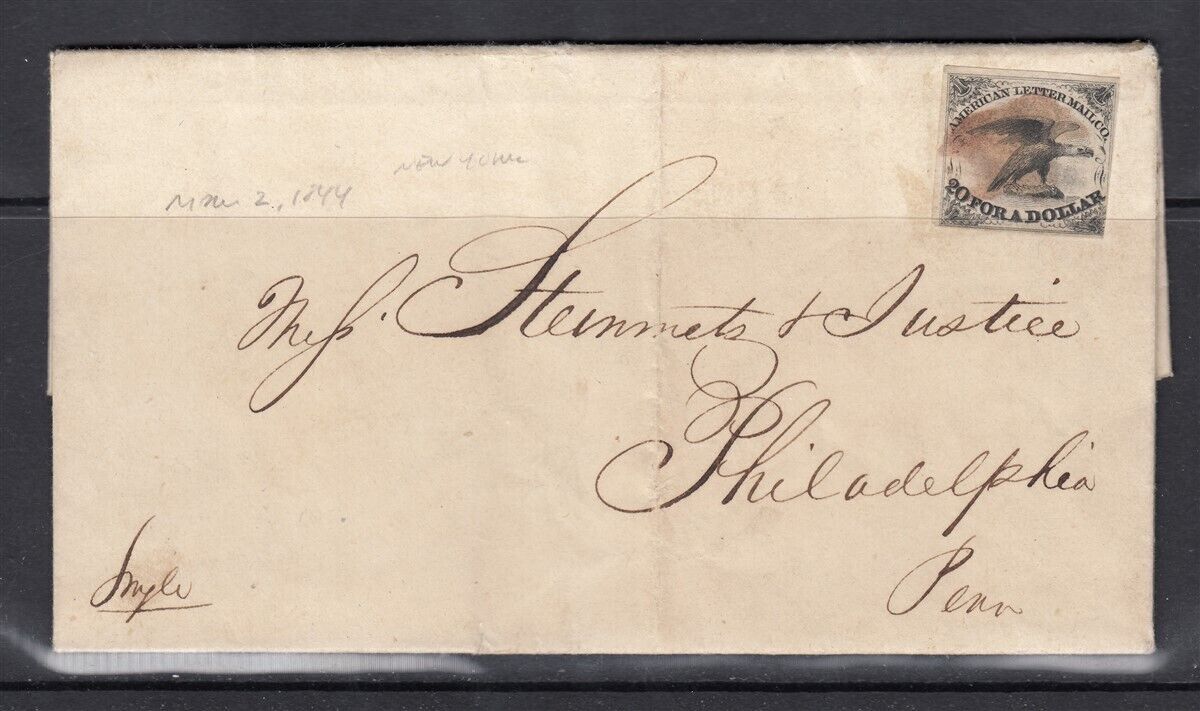 AMERICAN LETTER MAIL CO.
20 FOR A DOLLAR
NEW YORK
MAR 2, 1844
Mess. Steinmetz & Justice
Philadelphia
Penn
Single